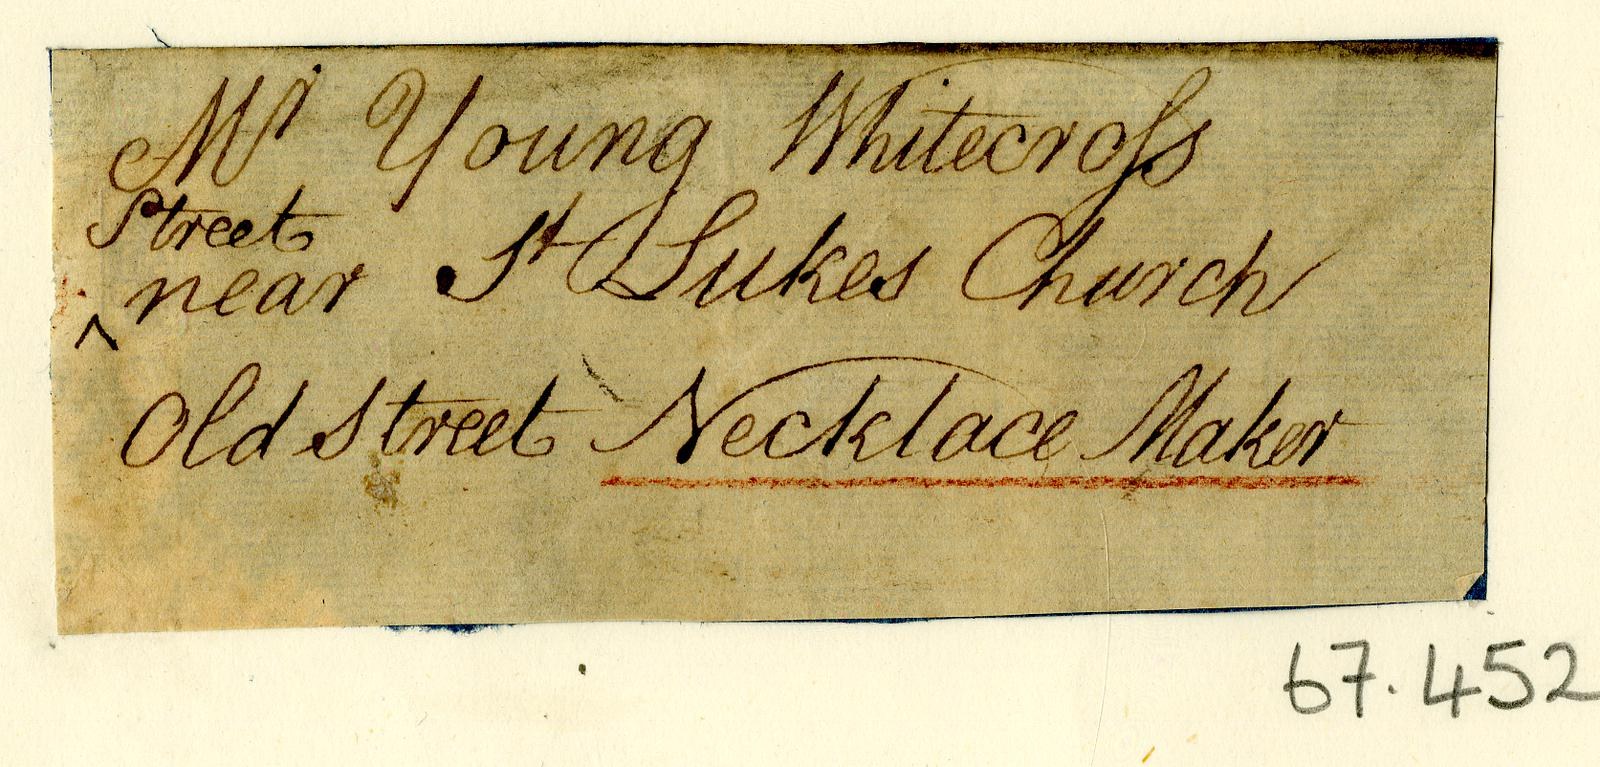 Mr Young Whitecroſs
Street
near St Lukes Church
^
Old Street Necklace Maker
67.452